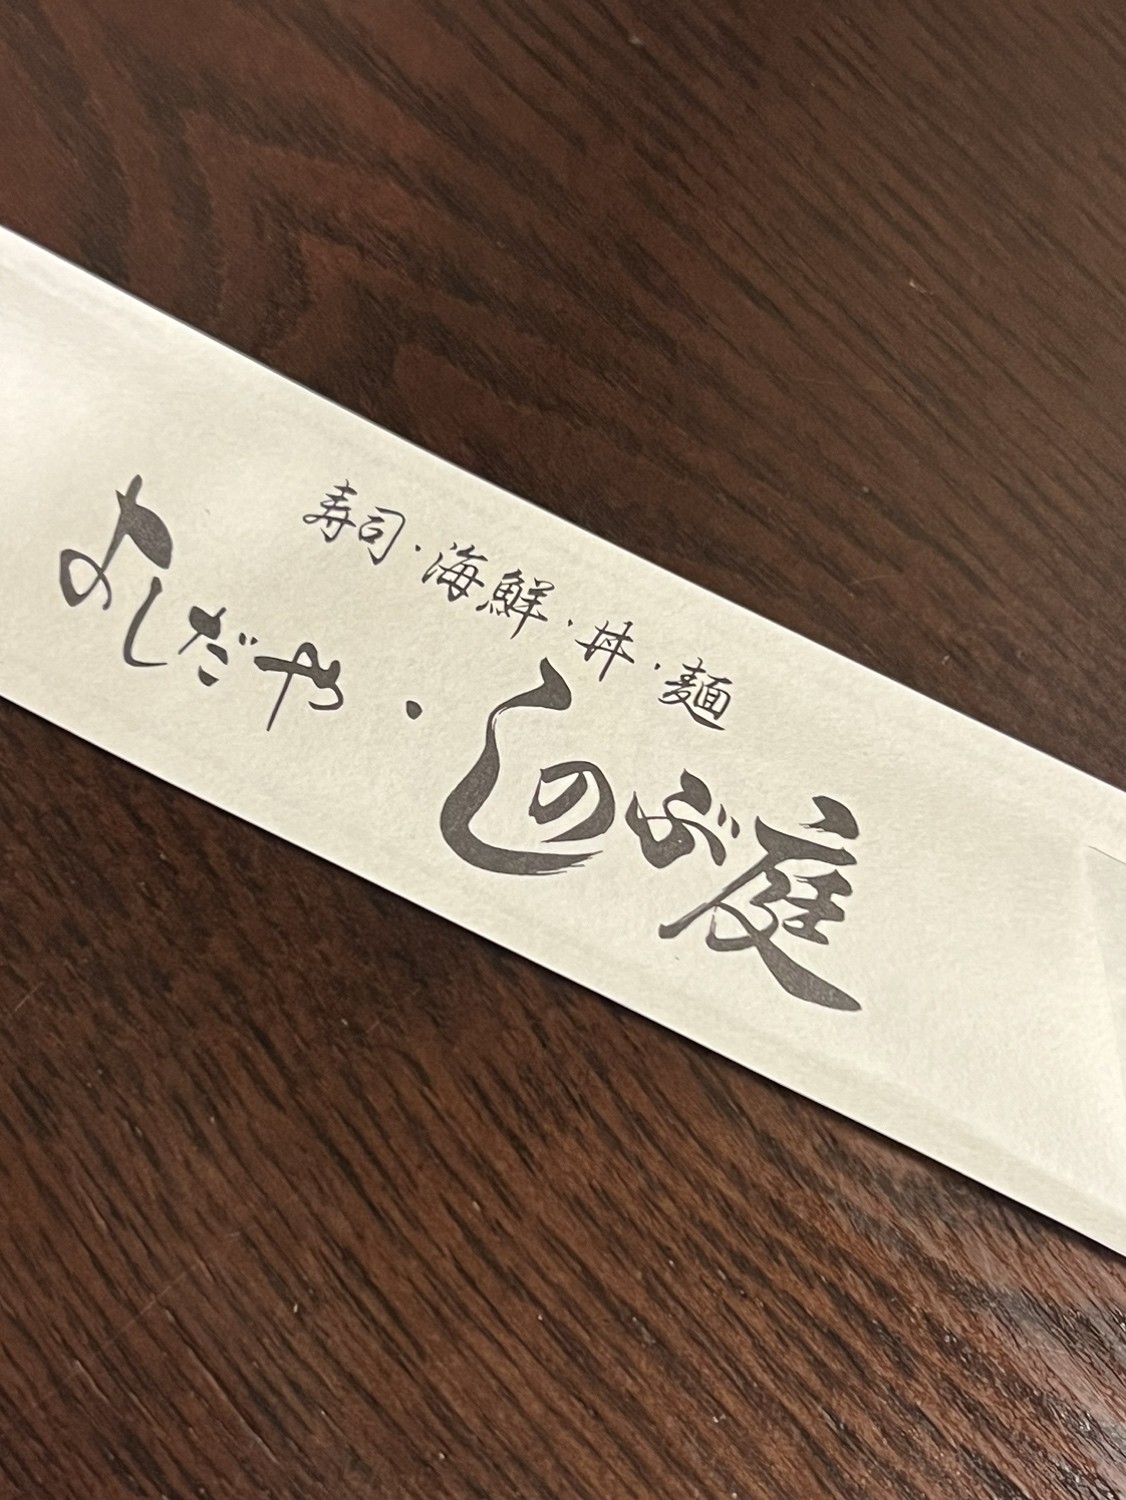 寿司・海鮮・丼・麺
よしだや・しのぶ庭